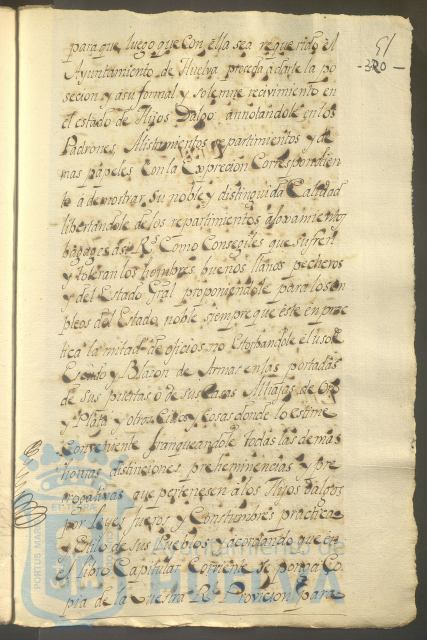 51
-320-
para que luego que con ella sea requerido el
Ayuntamiento de Huelva proceda a darle la po
secion y a su formal y solemne recivimiento en
el estado de Hijos Dalgo annotandole en los
Padrones Alistamientos repartimientos y de
mas papeles con la Exprecion Correspondien
te a demostrar su noble y distinguida Calidad
libertandole de los repartimientos aloxamientos
bagages asi Rs. como Consegiles que sufren
y toleran los hombres buenos llanos pecheros
y del Estado Gral proponiendole para los em
pleos del Estado noble siempre que este en prac
tica la mitad de oficios no Estorbandole el uso de
Escudo y Blazon de Armas en las portadas
de sus puertas o de sus casas Alhajas de Oro
y Plata y otros Sitios y cosas donde lo estime
conveniente franqueandole todas las demas
honrras distinciones prehemminencias y pre
rogativas que pertenesen a los Hijos dalgos
por Leyes fueros y Constumbres practica
y Estilo de sus Pueblos y acordando que en
el libro Capitular Corriente se ponga Co
pia de la Nuestra Rl. Provicion para
Ayuntamiento de
HUELVA
PORTUS MARIS